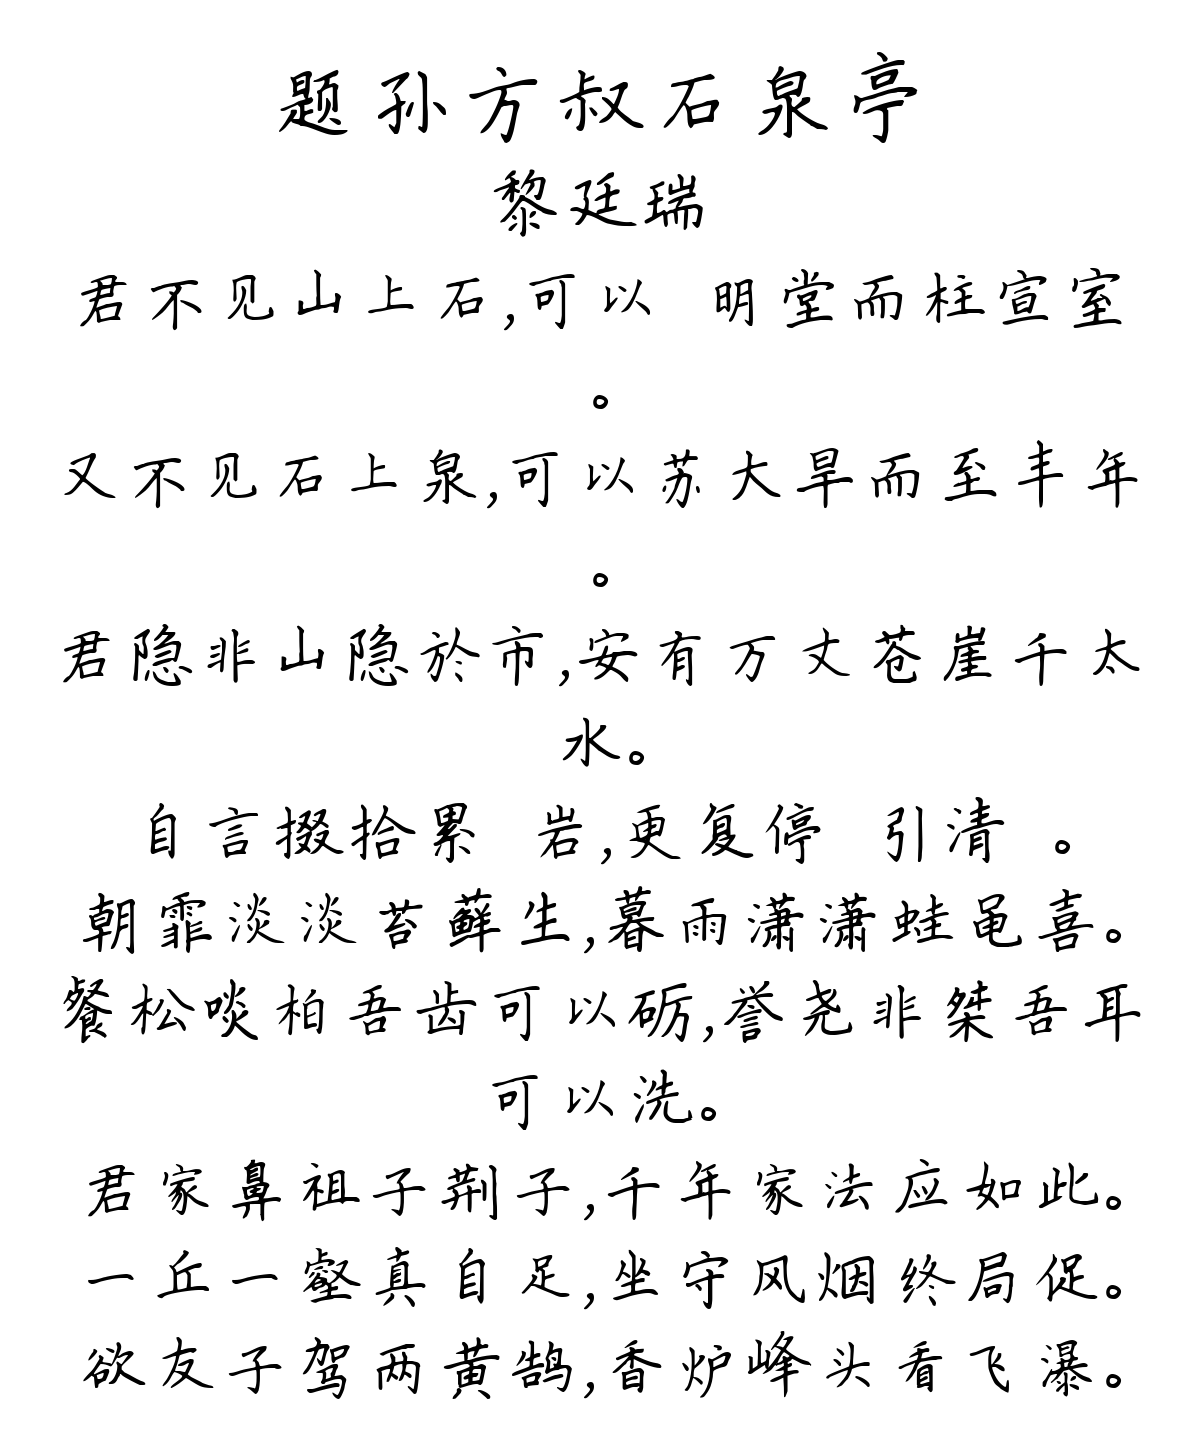 题孙方叔石泉亭
黎廷瑞
君不见山上石,可以 明堂而柱宣室
。
又不见石上泉,可以苏大旱而至丰年
。
君隐非山隐於市,安有万丈苍崖千太
水。
自言掇拾累 岩,更复停 引清 。
朝霏淡淡苔藓生,暮雨潇潇蛙黾喜。
餐松啖柏吾齿可以砺,誉尧非桀吾耳
可以洗。
君家鼻祖子荆子,千年家法应如此。
一丘一壑真自足,坐守风烟终局促。
欲友子驾两黄鹄,香炉峰头看飞瀑。